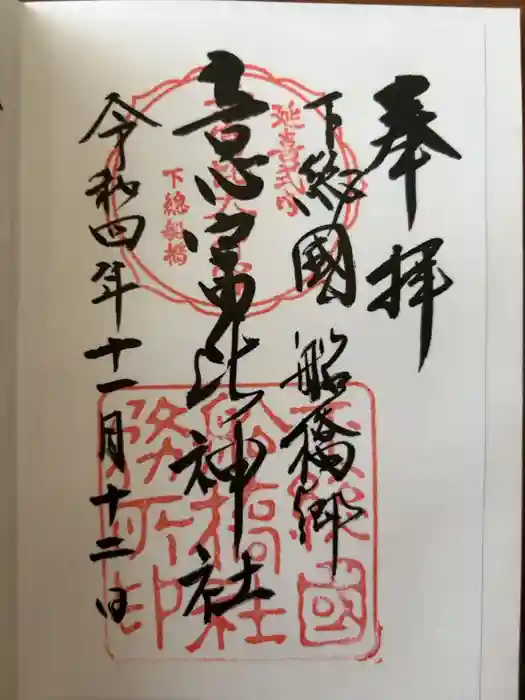 奉拝
下総國船橋郷
意富比神社
令和四年十一月十二日
延喜式内
下總船橋